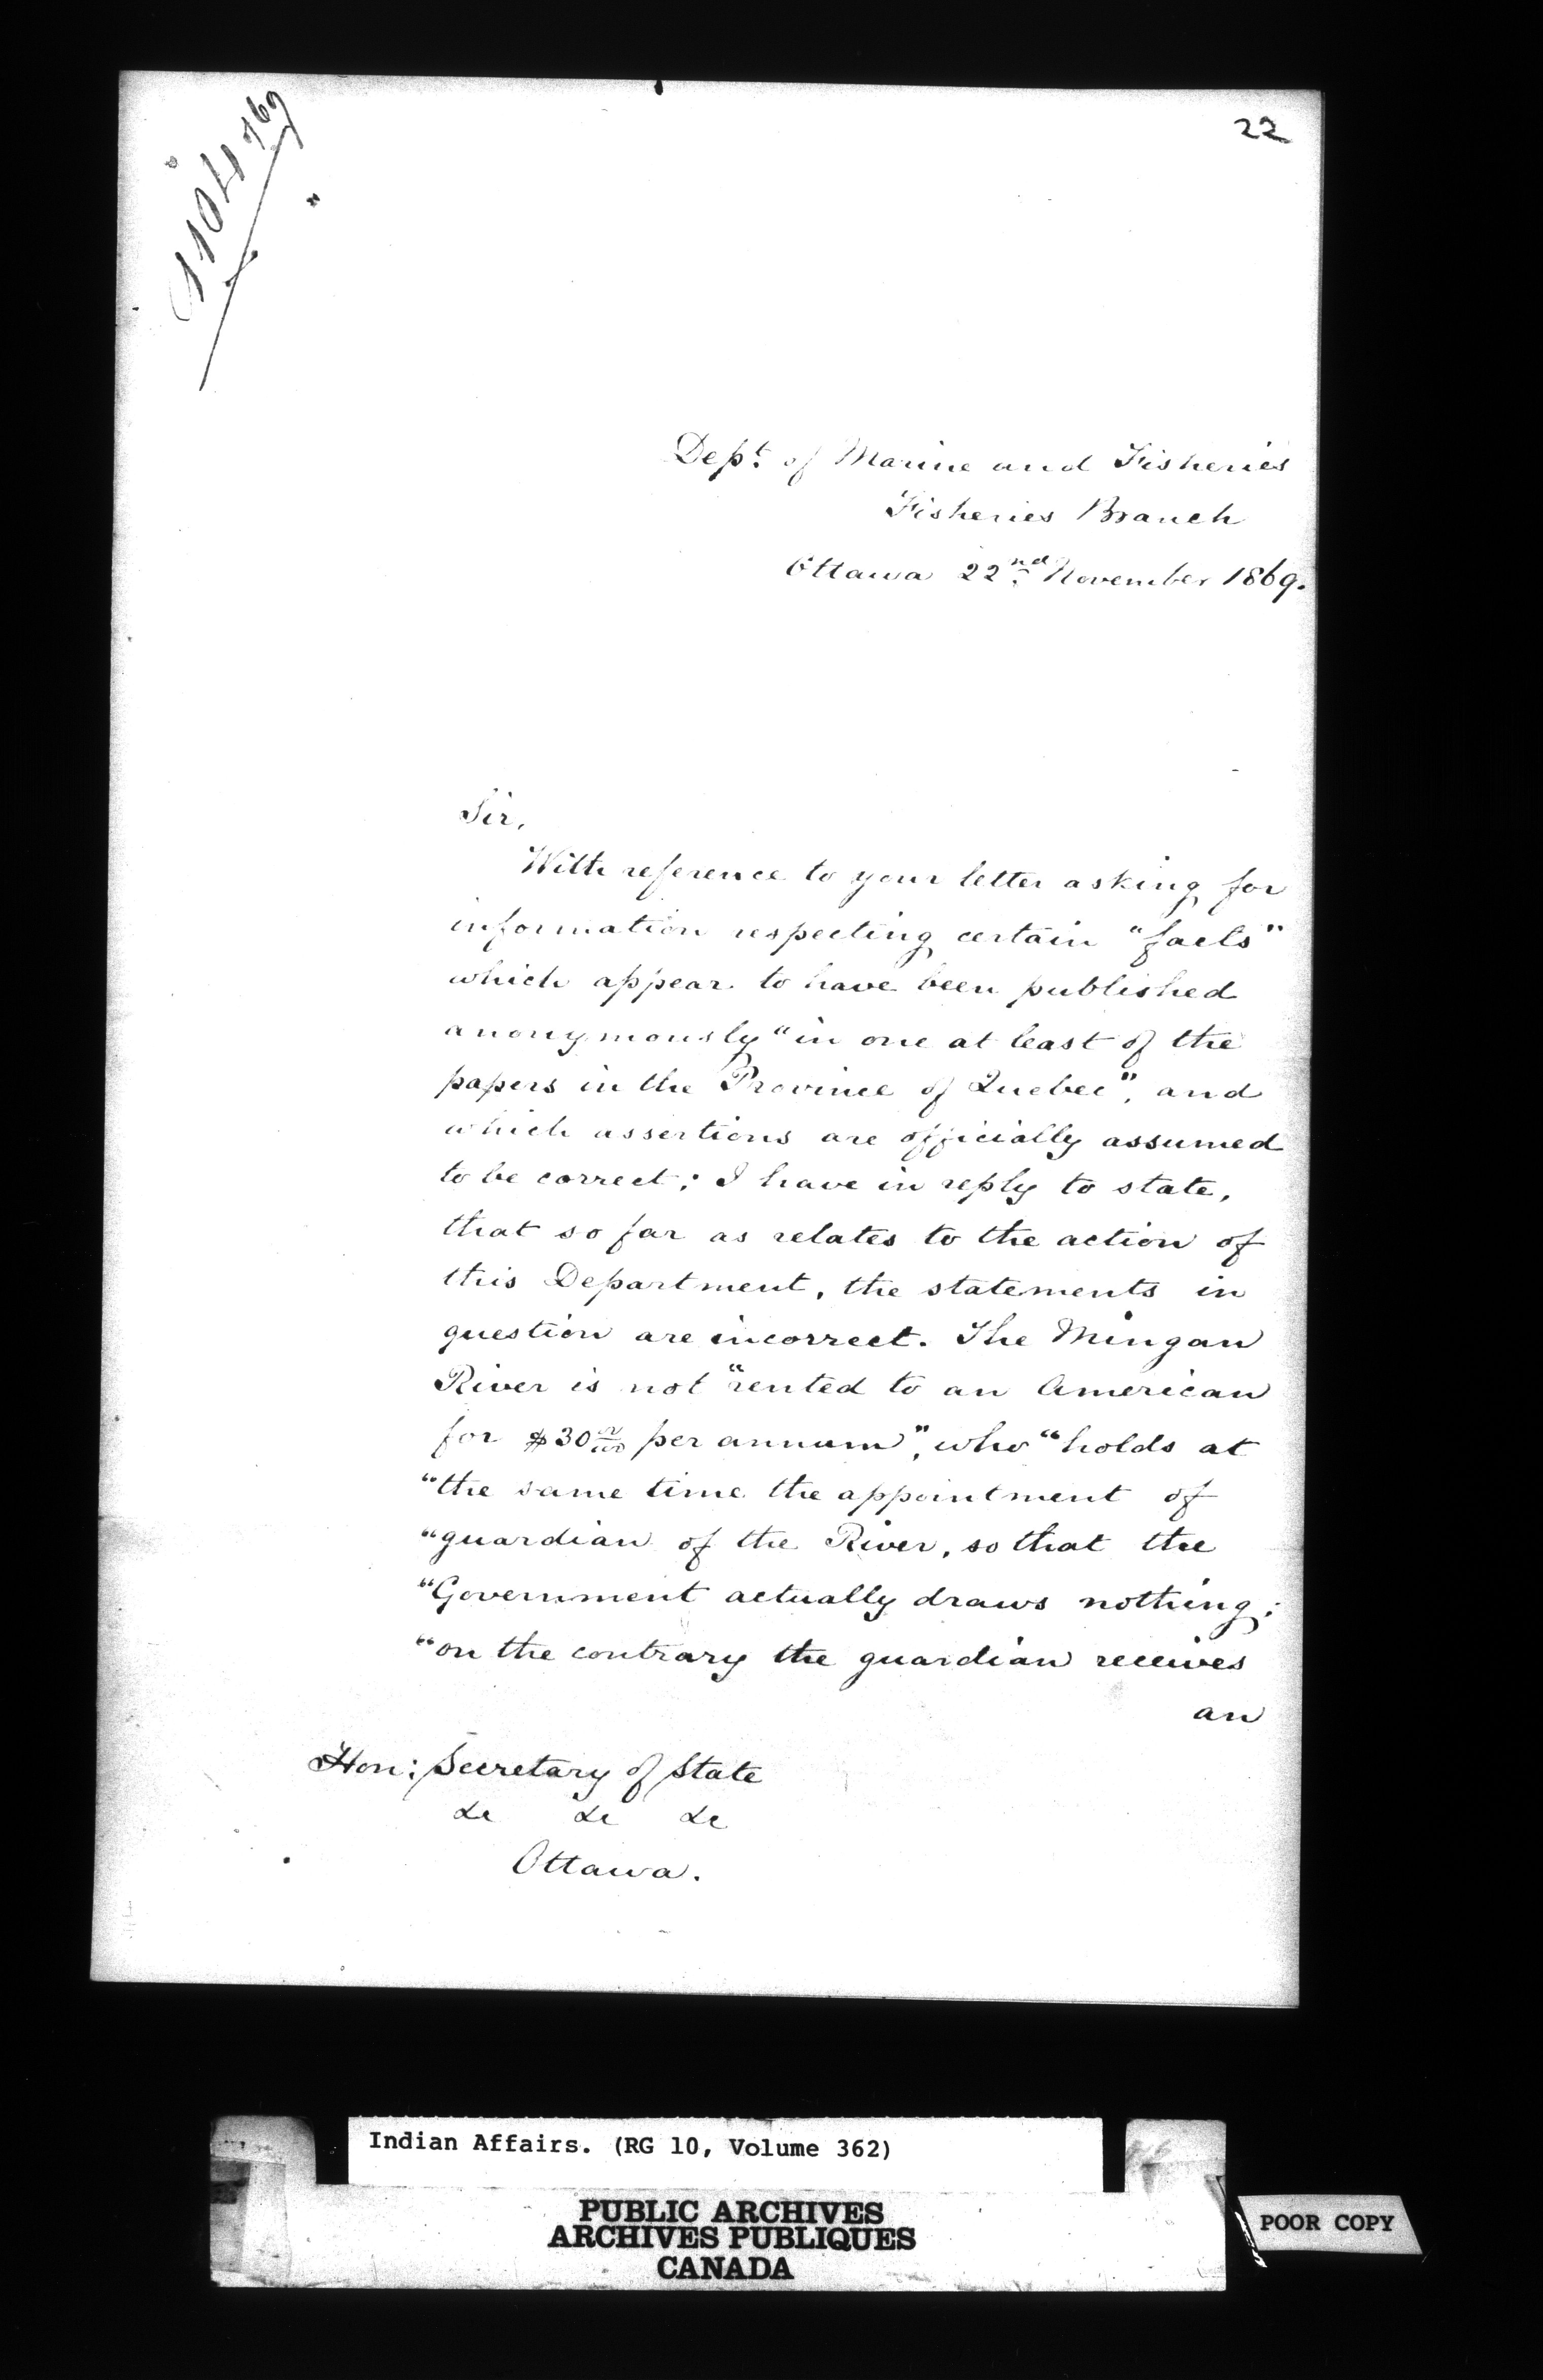 22
1104/69
Dept. of Marine and Fisheries
Fisheries Branch
Ottawa 22nd November 1869.
Sir,
With reference to your letter asking for
information respecting certain "facts"
which appear to have been published
anonymously "in one at least of the
papers in the Province of Quebec", and
which assertions are officially assumed
to be correct; I have in reply to state,
that so far as relates to the action of
this Department, the statements in
question are incorrect. The Mingan
River is not "rented to an American
for $30 per annum", who "holds at
"the same time the appointment of
"guardian of the River, so that the
"Government actually draws nothing;
"on the contrary the guardian receives
an
Hon: Secretary of State
&c &c &c
Ottawa.
Indian Affairs. (RG 10, Volume 362)
PUBLIC ARCHIVES
ARCHIVES PUBLIQUES
CANADA
POOR COPY